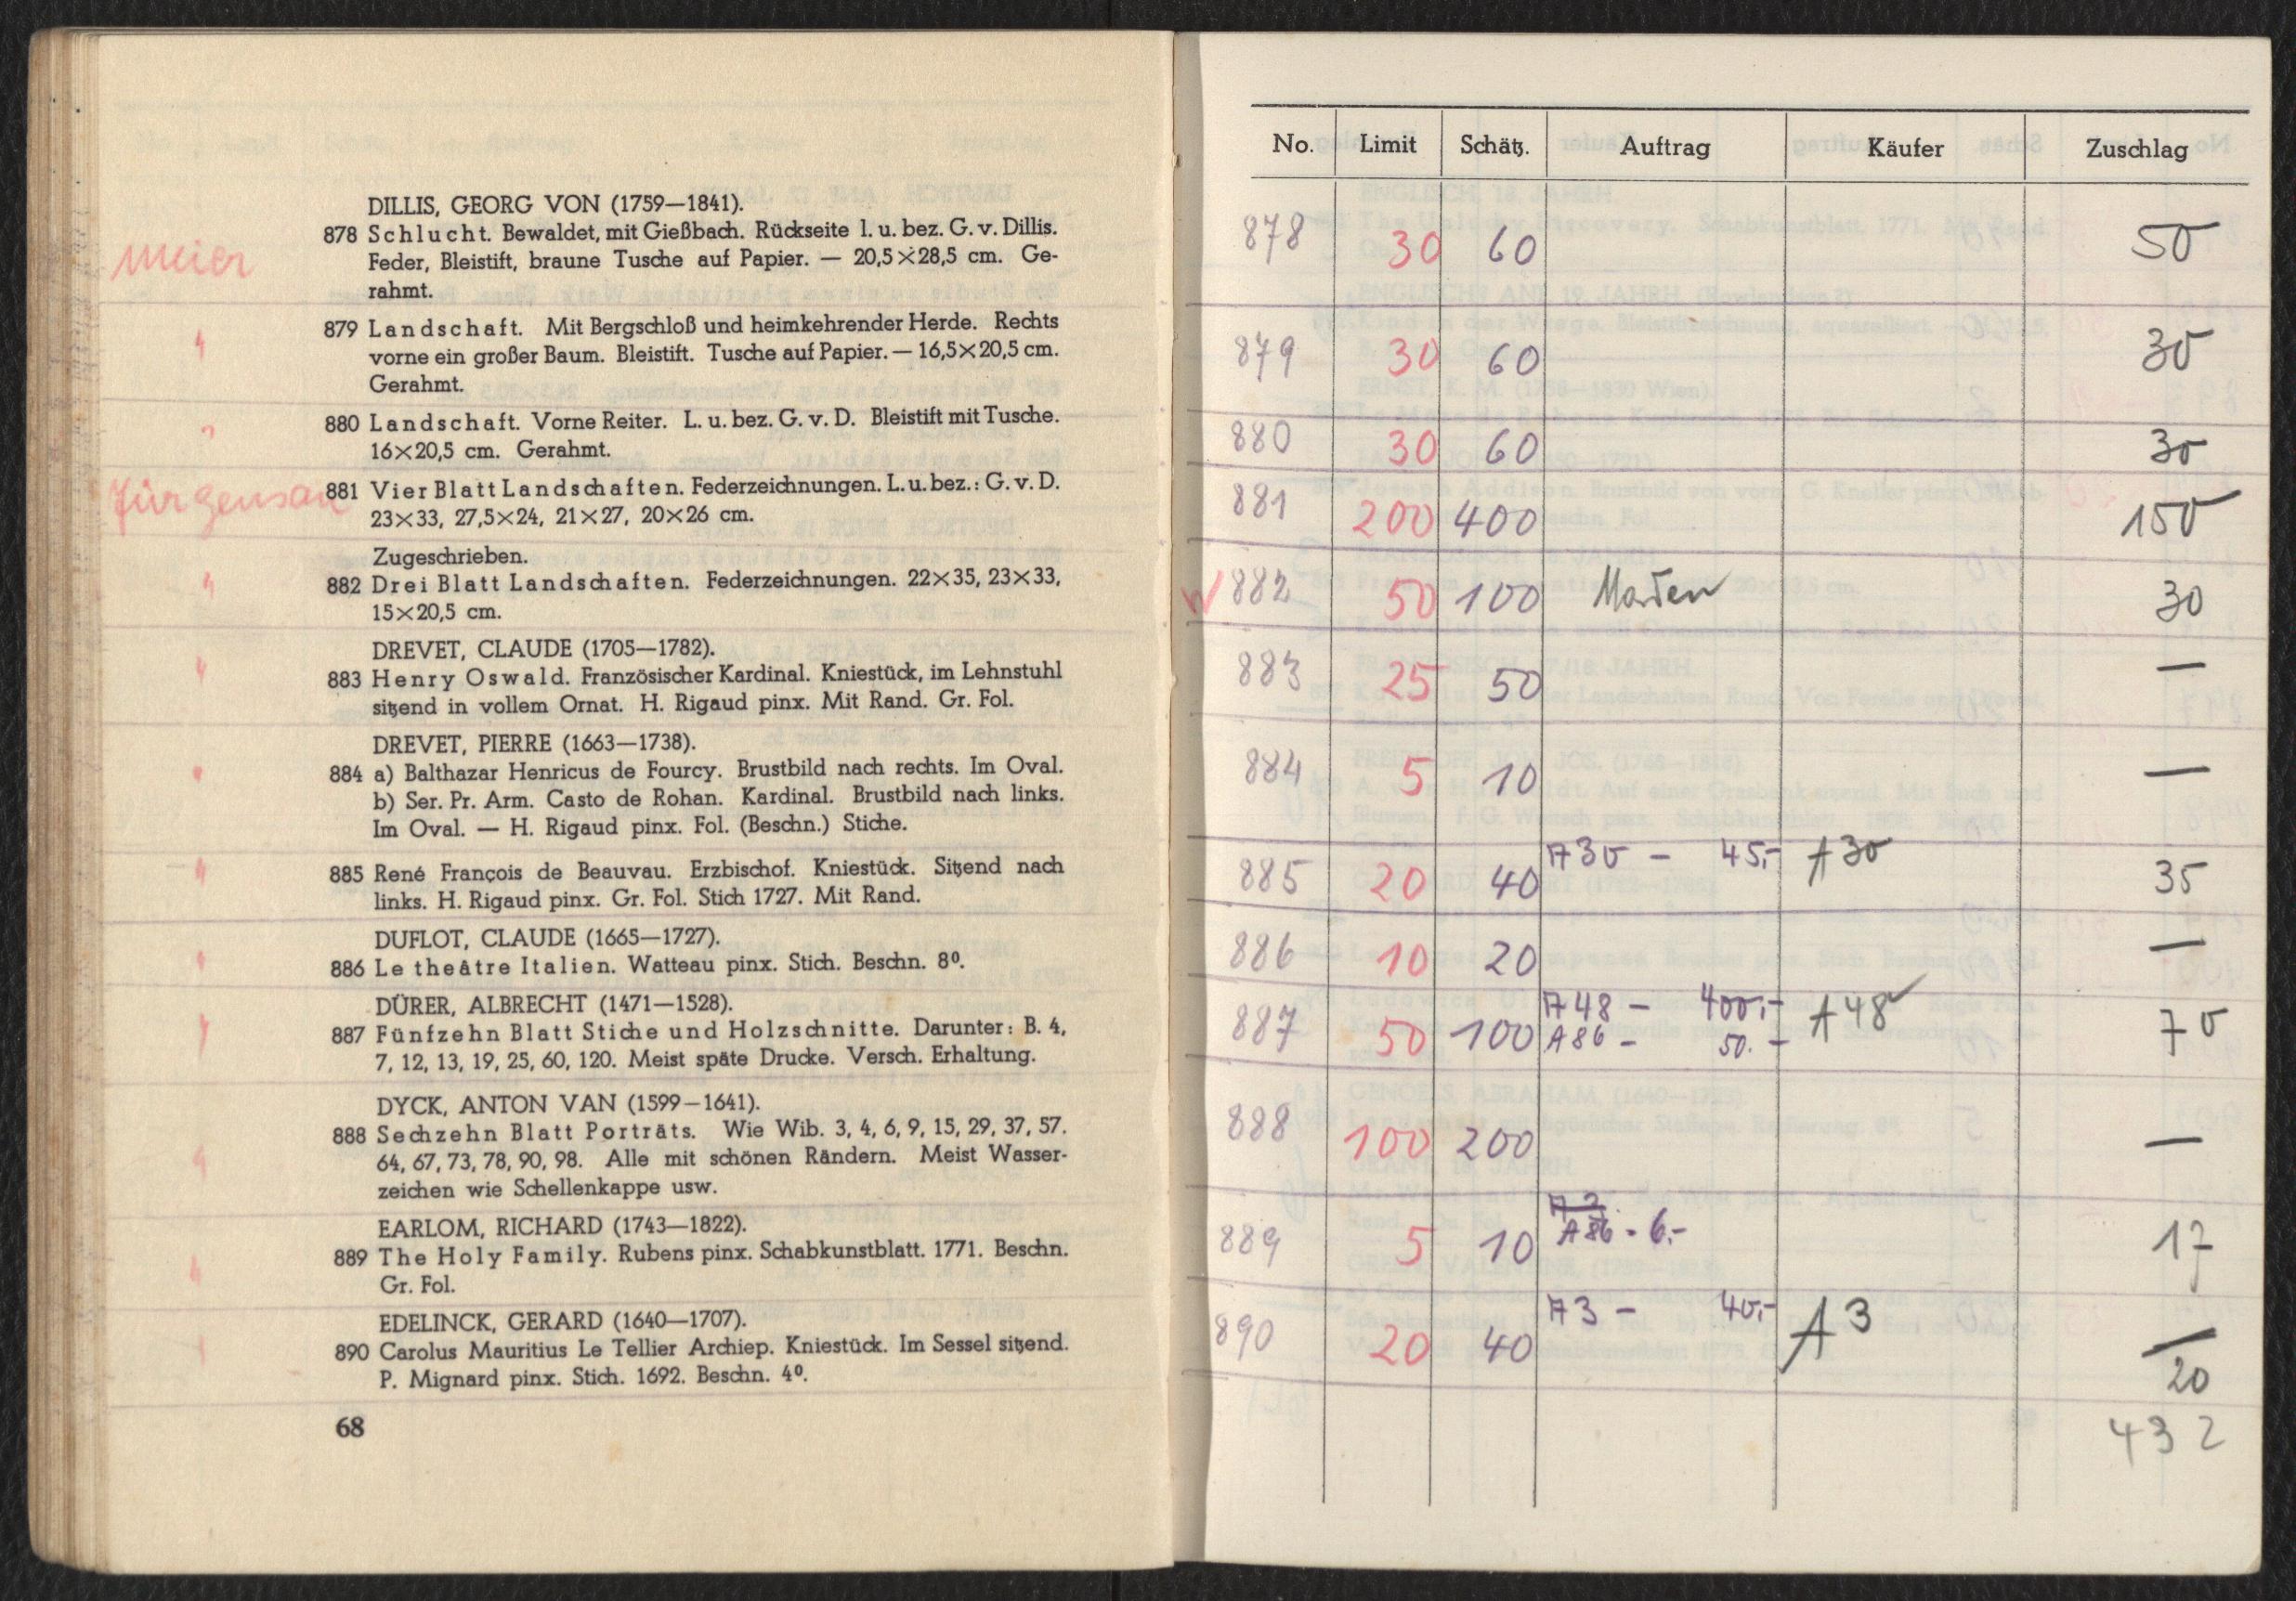 DILLIS, GEORG VON (1759—1841).
Meier
878 Schlucht. Bewaldet, mit Gießbach. Rückseite l. u. bez. G. v. Dillis.
Feder, Bleistift, braune Tusche auf Papier. — 20,5×28,5 cm. Ge-
rahmt.
" 879 Landschaft. Mit Bergschloß und heimkehrender Herde. Rechts
vorne ein großer Baum. Bleistift. Tusche auf Papier. — 16,5×20,5 cm.
Gerahmt.
" 880 Landschaft. Vorne Reiter. L. u. bez. G. v. D. Bleistift mit Tusche.
16×20,5 cm. Gerahmt.
Jürgensen
881 Vier Blatt Landschaften. Federzeichnungen. L. u. bez.: G. v. D.
23×33, 27,5×24, 21×27, 20×26 cm.
Zugeschrieben.
" 882 Drei Blatt Landschaften. Federzeichnungen. 22×35, 23×33,
15×20,5 cm.
DREVET, CLAUDE (1705—1782).
" 883 Henry Oswald. Französischer Kardinal. Kniestück, im Lehnstuhl
sitzend in vollem Ornat. H. Rigaud pinx. Mit Rand. Gr. Fol.
DREVET, PIERRE (1663—1738).
" 884 a) Balthazar Henricus de Fourcy. Brustbild nach rechts. Im Oval.
b) Ser. Pr. Arm. Casto de Rohan. Kardinal. Brustbild nach links.
Im Oval. — H. Rigaud pinx. Fol. (Beschn.) Stiche.
" 885 René François de Beauvau. Erzbischof. Kniestück. Sitzend nach
links. H. Rigaud pinx. Gr. Fol. Stich 1727. Mit Rand.
DUFLOT, CLAUDE (1665—1727).
" 886 Le theâtre Italien. Watteau pinx. Stich. Beschn. 8⁰.
DÜRER, ALBRECHT (1471—1528).
" 887 Fünfzehn Blatt Stiche und Holzschnitte. Darunter: B. 4,
7, 12, 13, 19, 25, 60, 120. Meist späte Drucke. Versch. Erhaltung.
DYCK, ANTON VAN (1599–1641).
888 Sechzehn Blatt Porträts. Wie Wib. 3, 4, 6, 9, 15, 29, 37, 57.
" 64, 67, 73, 78, 90, 98. Alle mit schönen Rändern. Meist Wasser-
zeichen wie Schellenkappe usw.
EARLOM, RICHARD (1743—1822).
" 889 The Holy Family. Rubens pinx. Schabkunstblatt. 1771. Beschn.
Gr. Fol.
EDELINCK, GERARD (1640—1707).
" 890 Carolus Mauritius Le Tellier Archiep. Kniestück. Im Sessel sitzend.
P. Mignard pinx. Stich. 1692. Beschn. 4⁰.
68
No. Limit Schätz. Auftrag Käufer Zuschlag
878 30 60 50
879 30 60 30
880 30 60 30
881 200 400 150
882 50 100 30
883 25 50 —
884 5 10 —
A 30 — 45,- A 30
885 20 40 35
886 10 20 —
A 48 — 400,- A 48
887 50 100 A 86 — 50.- 70
888 100 200 —
889 5 10 A 86 - 6,- 17
A 3 — 40,- A 3
890 20 40 —
20
432